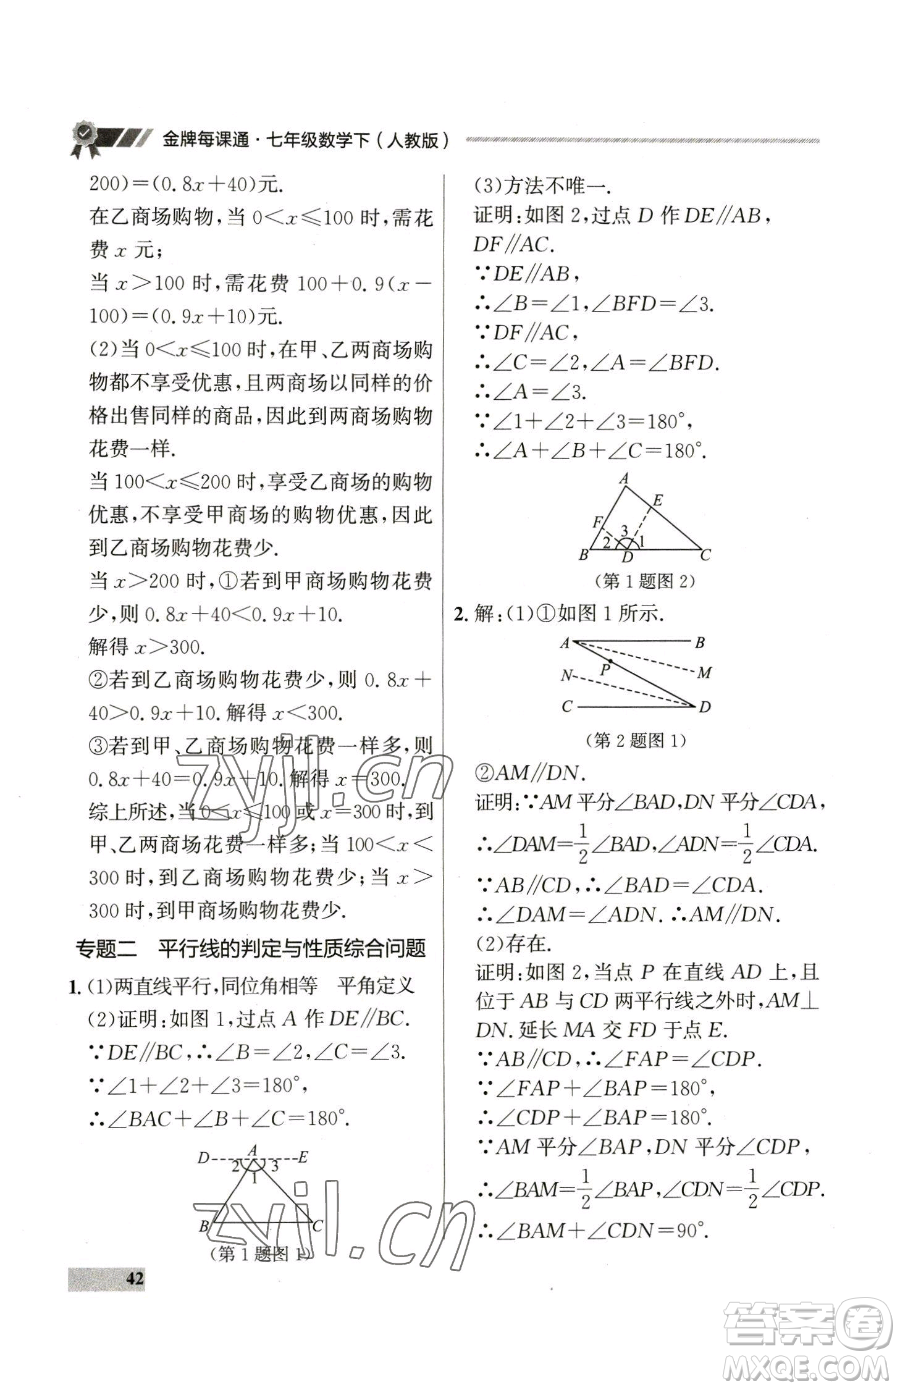 金牌每课通·七年级数学下(人教版)
200)=(0.8x+40)元.
在乙商场购物,当 0<x≤100 时,需花
费 x 元;
当 x>100 时,需花费 100+0.9(x-
100)=(0.9x+10)元.
(2)当 0<x≤100 时,在甲、乙两商场购
物都不享受优惠,且两商场以同样的价
格出售同样的商品,因此到两商场购物
花费一样.
当 100<x≤200 时,享受乙商场的购物
优惠,不享受甲商场的购物优惠,因此
到乙商场购物花费少.
当 x>200 时,①若到甲商场购物花费
少,则 0.8x+40<0.9x+10.
解得 x>300.
②若到乙商场购物花费少,则 0.8x+
40>0.9x+10.解得 x<300.
③若到甲、乙商场购物花费一样多,则
0.8x+40=0.9x+10.解得 x=300.
综上所述,当 0<x≤100 或 x=300 时,到
甲、乙两商场购物花费一样多;当 100<x<
300 时,到乙商场购物花费少;当 x>
300 时,到甲商场购物花费少.
专题二 平行线的判定与性质综合问题
1.(1)两直线平行,同位角相等 平角定义
(2)证明:如图 1,过点 A 作 DE∥BC.
∵DE∥BC,∴∠B=∠2,∠C=∠3.
∵∠1+∠2+∠3=180°,
∴∠BAC+∠B+∠C=180°.
D A E
2 3
1
B C
(第 1 题图 1)
42
(3)方法不唯一.
证明:如图 2,过点 D 作 DE∥AB,
DF∥AC.
∵DE∥AB,
∴∠B=∠1,∠BFD=∠3.
∵DF∥AC,
∴∠C=∠2,∠A=∠BFD.
∴∠A=∠3.
∵∠1+∠2+∠3=180°,
∴∠A+∠B+∠C=180°.
A
E
F
3
2 1
B D C
(第 1 题图 2)
2.解:(1)①如图 1 所示.
A B
P M
N
C D
(第 2 题图 1)
②AM∥DN.
证明:∵AM 平分∠BAD,DN 平分∠CDA,
∴∠DAM=1/2∠BAD,∠ADN=1/2∠CDA.
∵AB∥CD,∴∠BAD=∠CDA.
∴∠DAM=∠ADN.∴AM∥DN.
(2)存在.
证明:如图 2,当点 P 在直线 AD 上,且
位于 AB 与 CD 两平行线之外时,AM⊥
DN.延长 MA 交 FD 于点 E.
∵AB∥CD,∴∠FAP=∠CDP.
∵∠FAP+∠BAP=180°,
∴∠CDP+∠BAP=180°.
∵AM 平分∠BAP,DN 平分∠CDP,
∴∠BAM=1/2∠BAP,∠CDN=1/2∠CDP.
∴∠BAM+∠CDN=90°.
zyjl.cn
zyjl.cn
答案圈
MXQE.COM